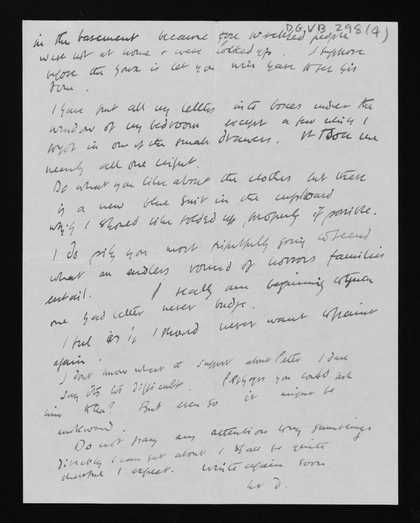 DG, VB 298(4)
in the basement because those wretched people
were not at home & were locked up. I suppose
before the house is let you will have to see his
time.
I have put all my letters into boxes under the
window of my bedroom except a few which I
kept in one of the small drawers. It took me
nearly all one night.
Do what you like about the clothes but there
is a new blue suit in the cupboard
which I should like folded up properly if possible.
I do pity you most frightfully going to
what an endless round of horrors families
entail. I really am beginning to think
one had better never budge.
I feel as if I should never want to paint
again!
I don't know what to suggest about Peter I dare
say it's a bit difficult. Perhaps you could ask
him to tea? But even so it might be
awkward.
Do not pay any attention to my grumblings
Directly I can get about I shall be quite
cheerful I expect. Write again soon
yr D.